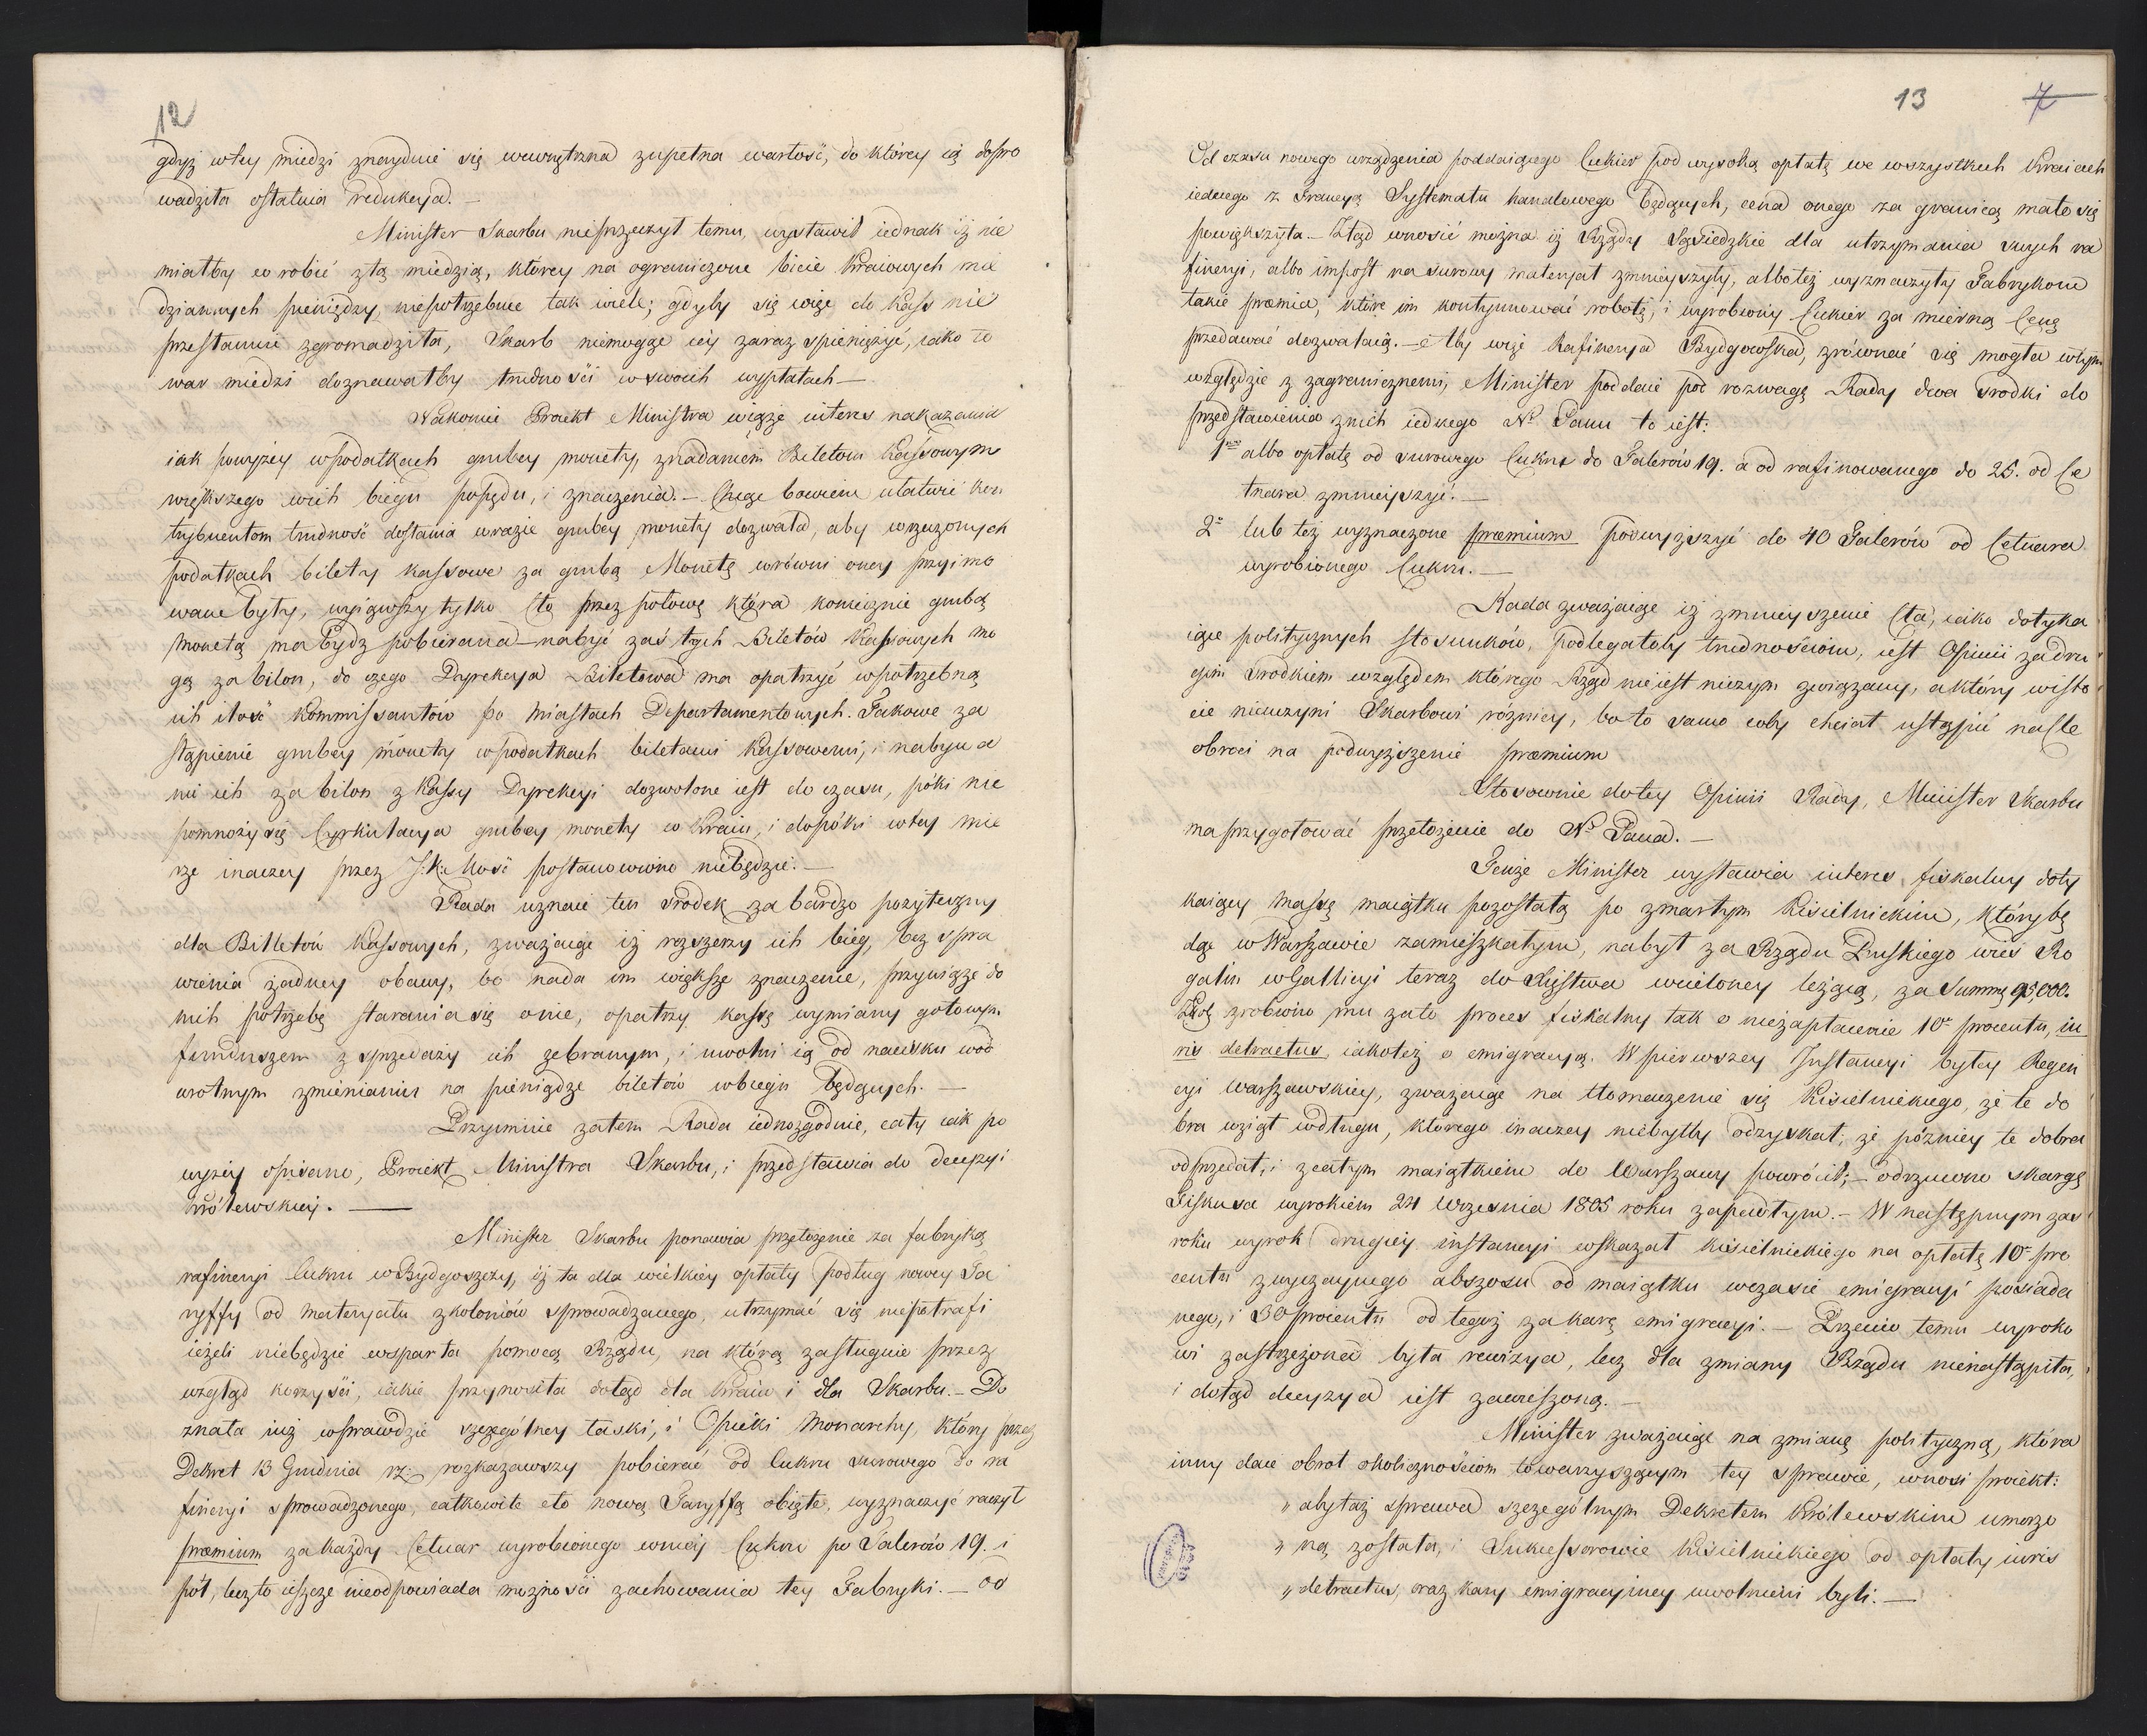 12
gdyż wtey miedzi znayduie się wewnętrzna zupełna wartość, do którey ią dopro
wadziła ostatnia redukcya. —
Minister Skarbu nieprzeczył temu, wystawił iednak iż nie
miałby co robić ztą miedzią, którey na ograniczone bicie kraiowych mie
dzianych pieniędzy, niepotrzebuie tak wiele; gdyby się więc do Kass nie
przestannie zgromadziła, Skarb niemogąc iéy zaraz spieniężyć, iako to
war miedzi doznawałby trudności wswoich wypłatach —
Nakoniec Proiekt Ministra wiąże interes nakazania
iak powyżey wpodatkach grubey monety, znadaniem Biletom Kassowym
większego wich biegu popędu, i znaczenia. — Chcąc bowiem ułatwić kon
trybuentom trudność dostania wrazie grubey monety dozwala, aby wrzeczonych
podatkach bilety kassowe za grubą Monetę wrówni oney przyimo
wane były, wyiąwszy tylko Cło przez połowę która koniecznie grubą
monetą ma bydz pobierana — nabyć zaś tych Biletów Kassowych mo
gą za bilon, do czego Dyrekcya Biletowa ma opatrzyć wpotrzebną
ich ilość Kommissantów po Miastach Departamentowych. Takowe za
stąpienie grubey monety wpodatkach biletami Kassowemi, i nabywa
nie ich za bilon z Kassy Dyrekcyi dozwolone iest do czasu, póki nie
pomnoży się Cyrkulacya grubey monety w Kraiu, i dopóki wtey mie
rze inaczey przez J. K. Mość postanowiono niebędzie. —
Rada uznaie ten srodek za bardzo pożyteczny
dla Billetów Kassowych, zważaiąc iż rozszerzy ich bieg, bez spra
wienia żadney obawy, bo nada im większe znaczenie, przywiąże do
nich potrzebę starania się onie, opatrzy kassę wymiany gotowym
funduszem z sprzedaży ich zebranym, i uwolni ią od nacisku wod
wrotnym zmienianiu na pieniądze biletów wbiegu będących. —
Przyimuie zatem Rada iednozgodnie, cały iak po
wyżéy opisano, Proiekt Ministra Skarbu, i przedstawia do decyzyi
królewskiey. —
Minister Skarbu ponawia przełożenie za fabryką
rafineryi Cukru w Bydgoszczy, iż ta dla wielkiéy opłaty podług nowey Ta
ryffy od materyału zkoloniów sprowadzanego, utrzymać się niepotrafi
ieżeli niebędzie wsparta pomocą Rządu, na którą zasługuie przez
wzgląd korzyści, iakie przynosiła dotąd dla kraiu i dla Skarbu. — Do
znała iuż wprawdzie szczególney łaski, i Opieki Monarchy, który przez
Dekret 13 Grudnia r.z. rozkazawszy pobierać od Cukru surowego do ra
fineryi sprowadzonego, całkowite cło nową Taryffą obięte, wyznaczyć raczył
præmium za każdy Cetnar wyrobionego wniéy Cukru po Talerów 19. i
pół, lecz to ieszcze nieodpowiada możności zachowania tey Fabryki. — od
13 7
Od czasu nowego urządzenia poddaiącego Cukier pod wysoką opłatę we wszystkich Kraiach
iednego z Francyą Systematu handlowego będących, cena onego za granicą mało się
powiększyła. — Ztąd wnosić można iż Rządy Sąsiedzkie dla utrzymania swych ra
fineryi, albo impost na surowy materyał zmnieyszyły, albo też wyznaczyły Fabrykom
takie præmia, które im kontynuować robotę, i wyrobiony Cukier za mierną Cenę
przedawać dozwalaią. — Aby więc Rafinerya Bydgowska, zrównać się mogła wtym
względzie z zagranicznemi, Minister poddaie pod rozwagę Rady dwa srodki do
przedstawienia znich iednego N. Panu to iest:
1mo albo opłatę od surowego Cukru do Talerów 19. a od rafinowanego do 25. od Ce
tnara zmnieyszyć. —
2o lub też wyznaczone præmium podwyższyć do 40 Talerów od Cetnara
wyrobionego Cukru. —
Rada zważaiąc iż zmnieyszenie Cła, iako dotyka
iące politycznych stosunków, podlegałoby trudnościom, iest Opinii za dru
gim srodkiem względem którego Rząd nieiest niczym związany, a który wisto
cie nieuczyni Skarbowi różnicy, bo to samo coby chciał ustąpić na Cle
obroci na podwyższenie præmium
Stosownie do tey Opinii Rady, Minister Skarbu
ma przygotować przełożenie do N. Pana. —
Tenże Minister wystawia interes fiskalny doty
kaiący massę maiątku pozostałą po zmarłym Kisielnickim, który bę
dąc w Warszawie zamieszkałym, nabył za Rządu Pruskiego wieś Ro
galin w Gallicyi teraz do Xięstwa wcieloney leżącą, za Summę 95,000.
Zrobiono mu zato proces fiskalny tak o niezapłacenie 10o procentu, iu
ris detractus, iakoteż o emigracyą. W pierwszey Instancyi byłey Regen
cyi Warszawskiey, zważaiąc na tłomaczenie się Kisielnickiego, że te do
bra wziął wdługu, którego inaczey niebyłby odzyskał; że późniey te dobra
odprzedał, i zcałym maiątkiem do Warszawy powrócił; — odrzucono skargę
Fiskusa wyrokiem 24 Września 1805 roku zapadłym. — W następnym zaś
roku wyrok drugiéy instancyi wskazał Kisielnickiego na opłatę 10o pro
centu zwyczaynego abszosu od maiątku wczasie emigracyi posiada
nego, i 30 procentu od tegoż za karę emigracyi. — Przeciw temu wyroko
wi zastrzeżona była rewizya, lecz dla zmiany Rządu nienastąpiła,
i dotąd decyzya iest zawieszoną. —
Minister zważaiąc na zmianę polityczną, która
inny daie obrot okolicznościom towarzyszącym tey sprawie, wnosi proiekt:
„ aby taż sprawa szczególnym Dekretem Królewskim umorzo
„ ną została, i Sukcessorowie Kisielnickiego od opłaty iuris
„ detractus, oraz kary emigracyiney uwolnieni byli. —